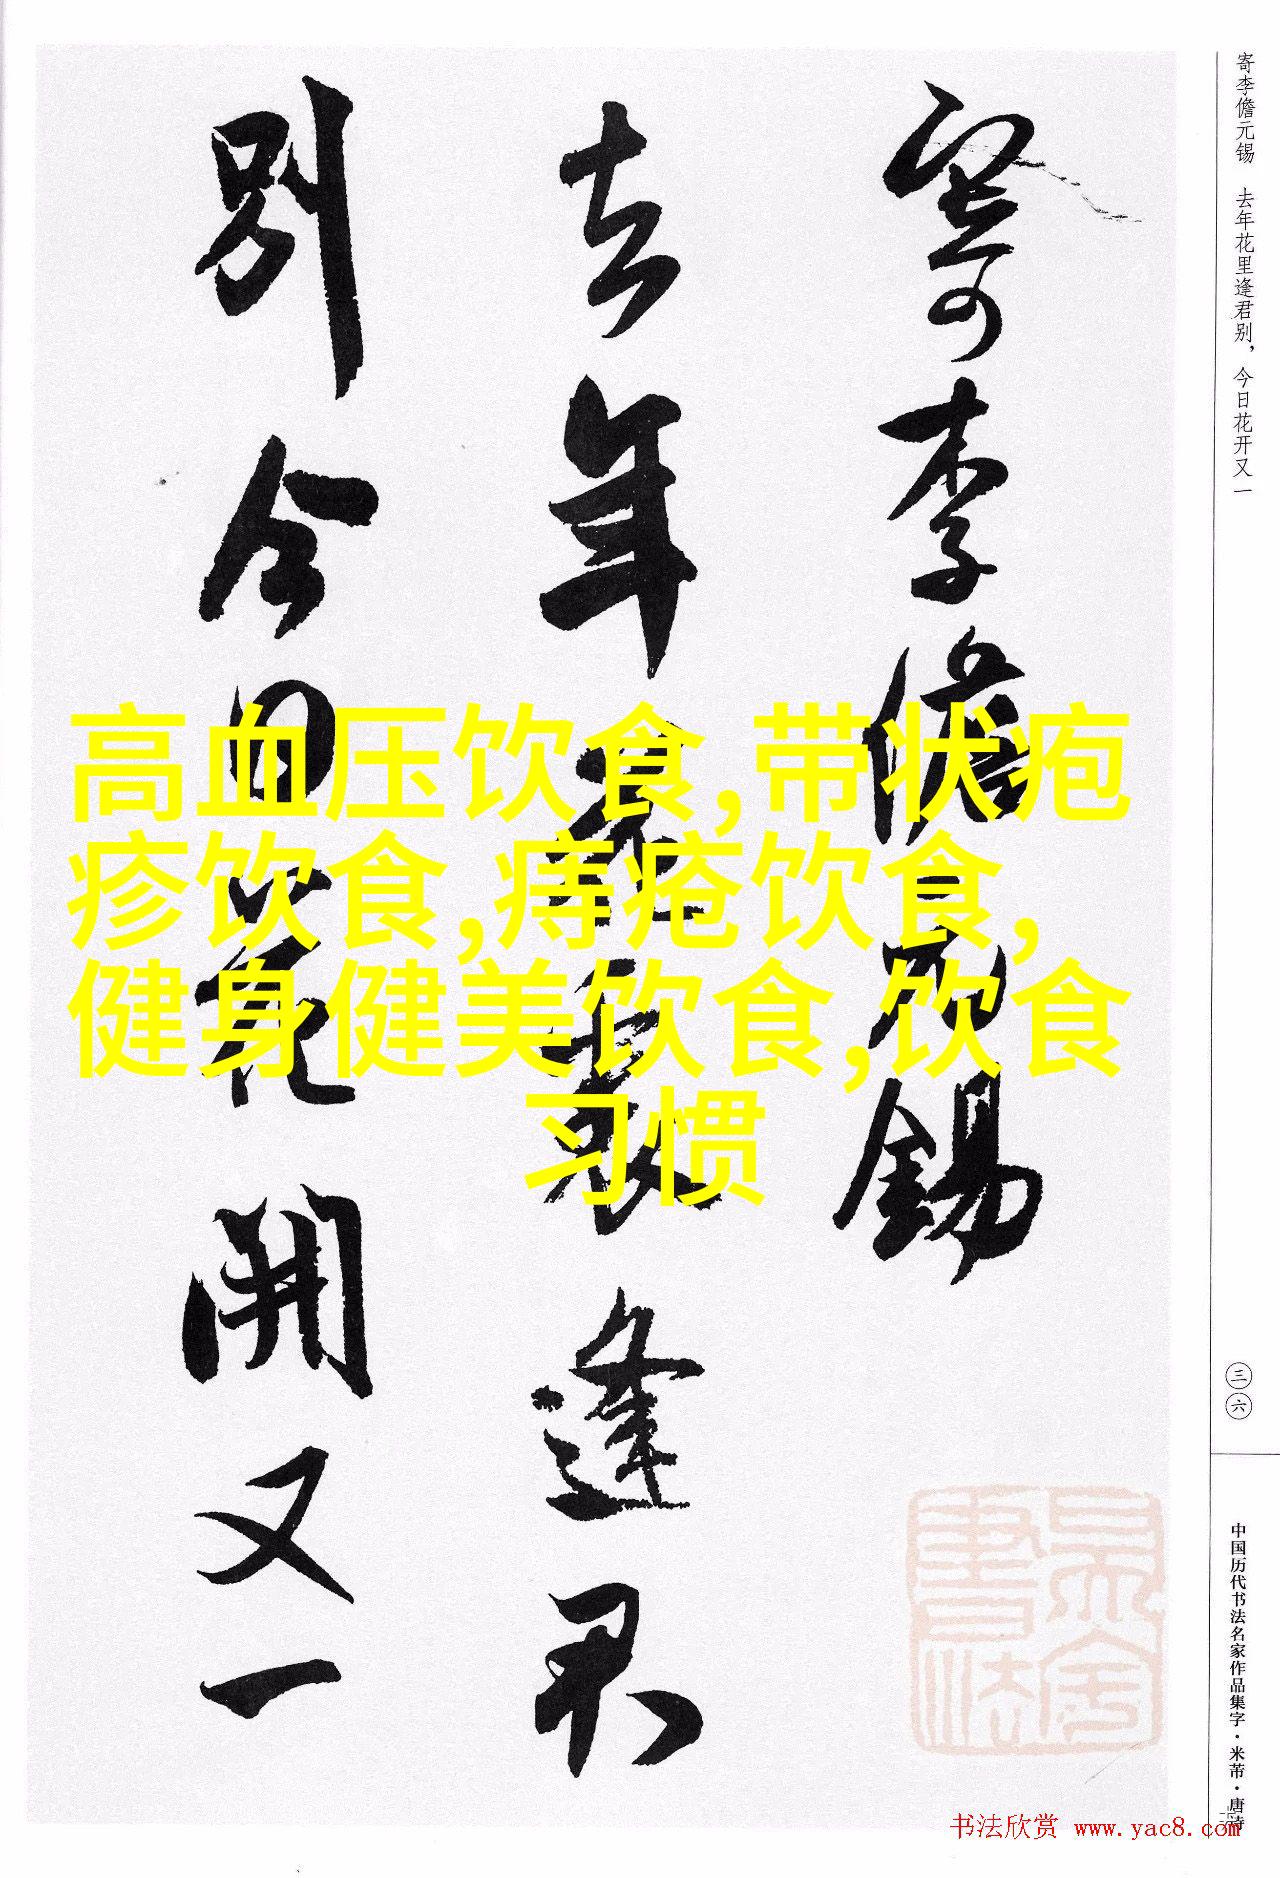 寄李儋元锡　去年花里逢君别，今日花开又一
三六
中国历代书法名家作品集字·米芾·唐诗
寄李儋元錫
去年花裏逢君
別今日花開又一
高血压饮食,带状疱
疹饮食,痔疮饮食,
健身健美饮食,饮食
习惯
书法欣赏 www.yac8.com